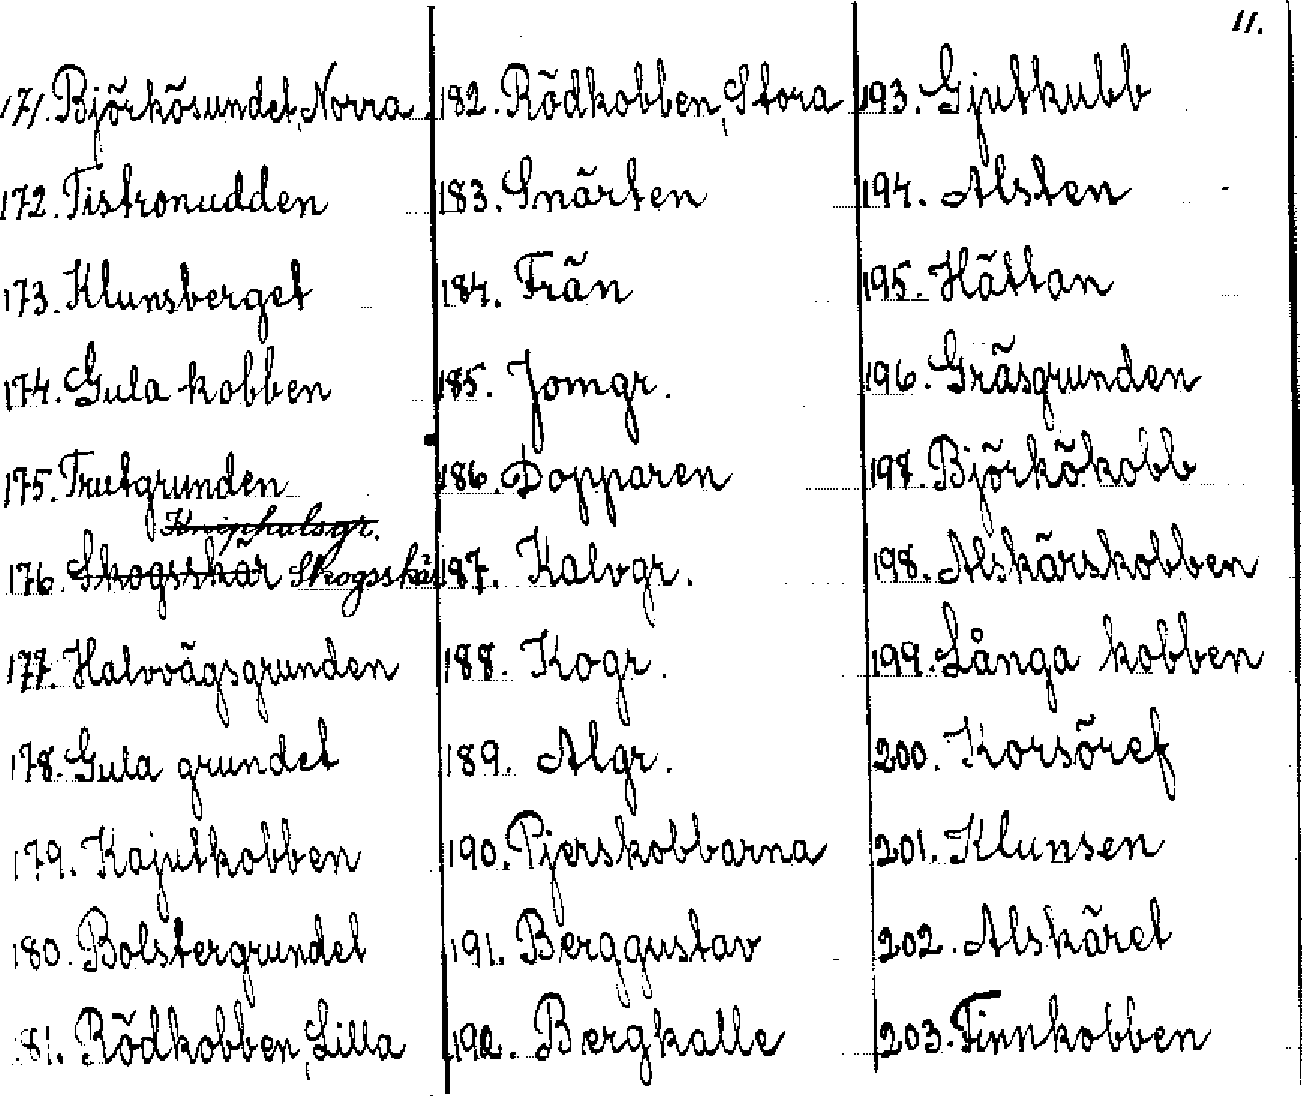 11.
171. Björkösundet, Norra
172. Tistronudden
173. Klunsberget
174. Gula kobben
175. Trutgrunden
Kniphalsgr.
176. Skogsskär Skogsskär
177. Halvvägsgrunden
178. Gula grundet
179. Kajutkobben
180. Bolstergrundet
181. Rödkobben, Lilla
182. Rödkobben, Stora
183. Snärten
184. Från
185. Jomgr.
186. Dopparen
187. Kalvgr.
188. Kogr.
189. Algr.
190. Pjerskobbarna
191. Berggustav
192. Bergkalle
193. Gjutkubb
194. Alsten
195. Hättan
196. Gräsgrunden
197. Björkökobb
198. Alskärskobben
199. Långa kobben
200. Korsöref
201. Klunsen
202. Alskäret
203. Finnkobben